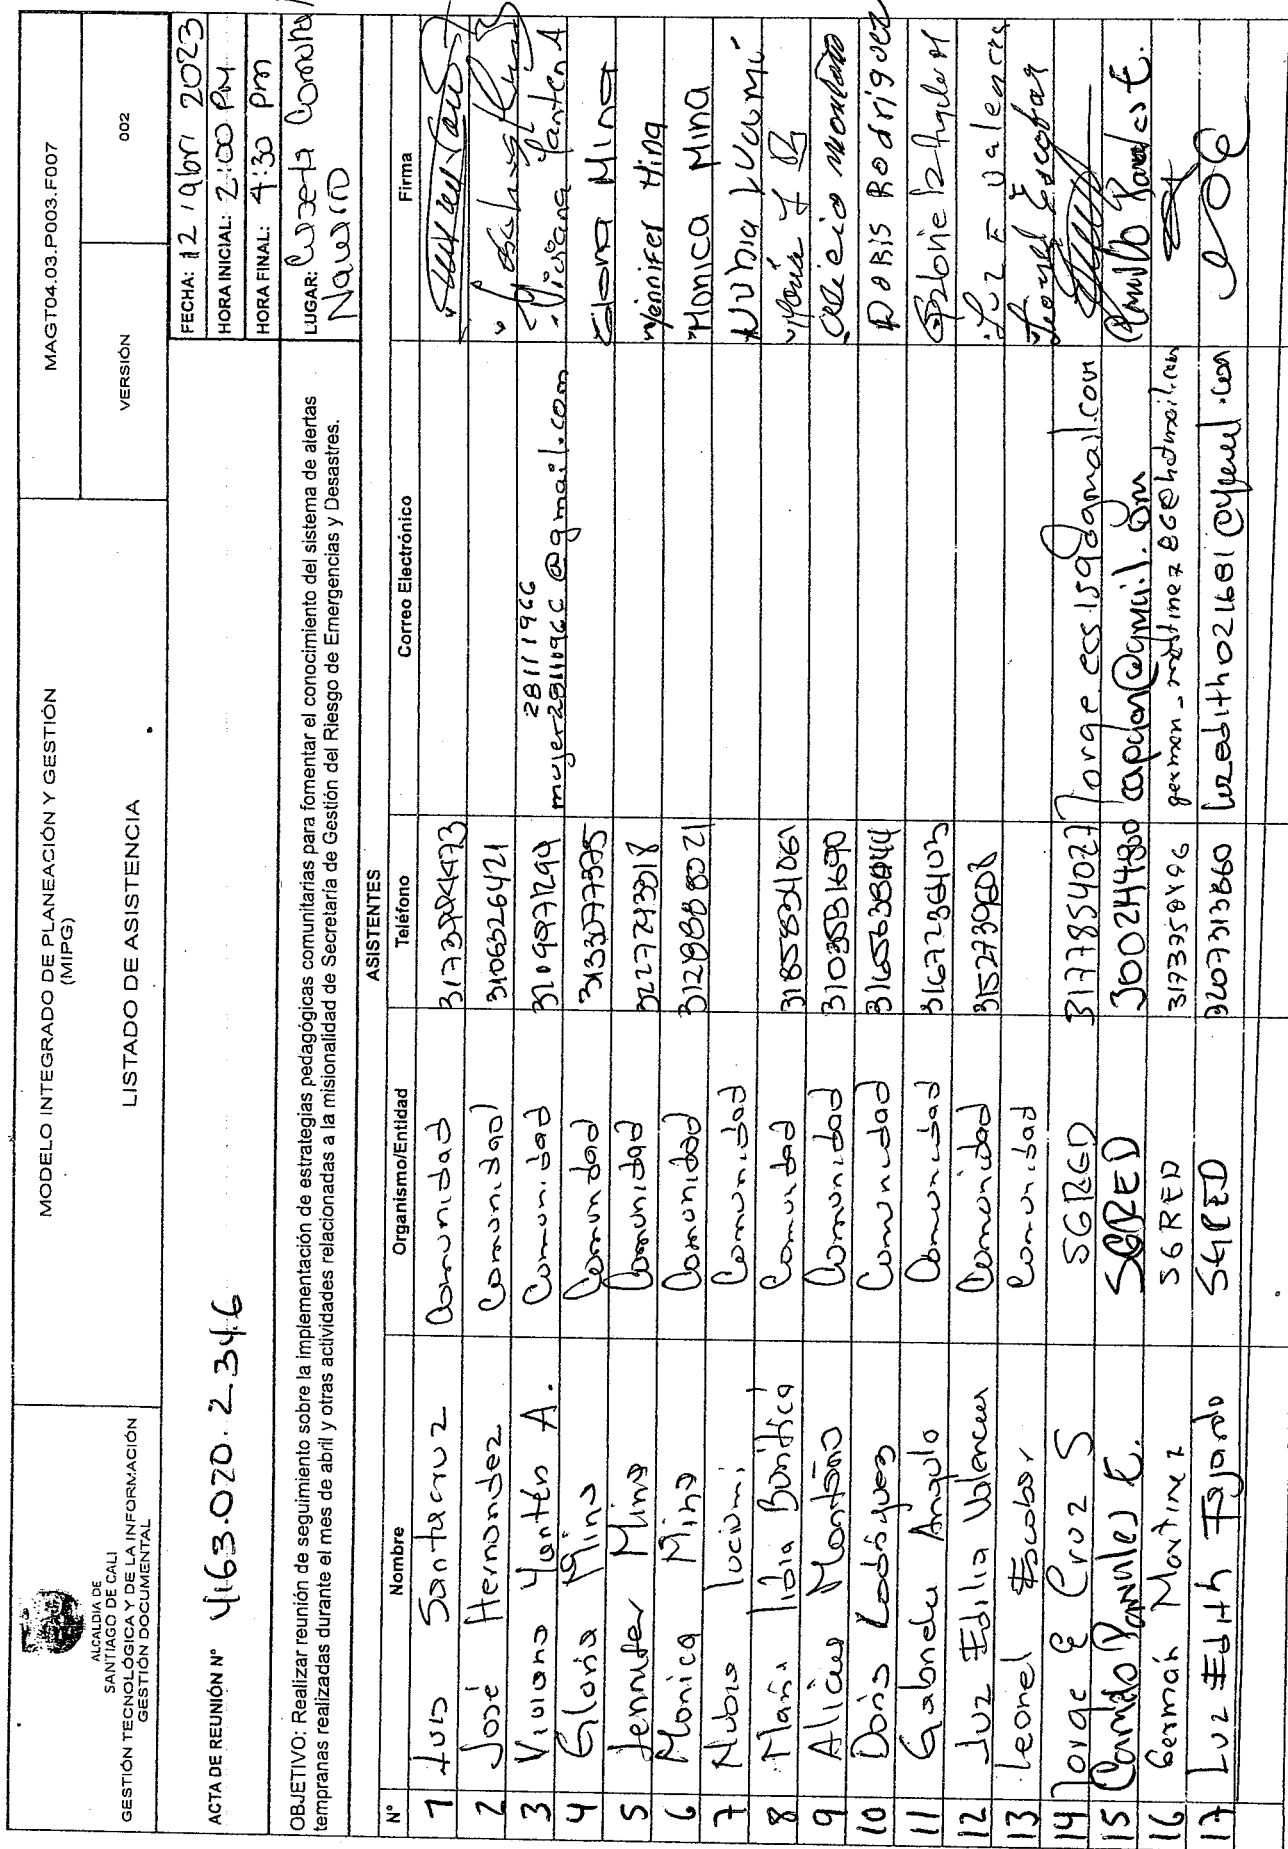 ALCALDIA DE
SANTIAGO DE CALI
GESTIÓN TECNOLÓGICA Y DE LA INFORMACIÓN
GESTIÓN DOCUMENTAL
MODELO INTEGRADO DE PLANEACIÓN Y GESTIÓN
(MIPG)
LISTADO DE ASISTENCIA
MAGT04.03.P003.F007
VERSIÓN 002
ACTA DE REUNIÓN N° 4163.020.2.34.6
FECHA: 12 / abri 2023
HORA INICIAL: 2:00 PM
HORA FINAL: 4:30 pm
LUGAR: Caseta Comunal
OBJETIVO: Realizar reunión de seguimiento sobre la implementación de estrategias pedagógicas comunitarias para fomentar el conocimiento del sistema de alertas
tempranas realizadas durante el mes de abril y otras actividades relacionadas a la misionalidad de Secretaría de Gestión del Riesgo de Emergencias y Desastres.
ASISTENTES
N° Nombre Organismo/Entidad Teléfono Correo Electrónico Firma
1 Luis Santacruz Comunidad
2 José Hernandez Comunidad 3106326421
3 Viviana Yanten A. Comunidad 28111966 mujer28111966@gmail.com Viviana Yanten A
4 Gloria Mina Comunidad 3133077375 Gloria Mina
5 Jennifer Mina Comunidad 3227243318 Jennifer Mina
6 Monica Mina Comunidad 3128888021 Monica Mina
7 Nubia lucumi Comunidad Nubia Lucumi
8 María lidia Buritica Comunidad 3185834061 María L B
9 Alicia Montaño Comunidad 3103531690 Alicia Montaño
10 Doris Rodriguez Comunidad DORIS RodrígueZ
11 Gabriela Angulo Comunidad 3167236403
12 Luz Edilia Valencia Comunidad Luz E Valencia
13 Leonel Escobar Comunidad Leonel Escobar
14 Jorge E Cruz S SGRED 3177854027
15 Camilo Paredes E. SGRED 3002444800 Camilo Paredes E.
16 Germán Martinez SGRED german_martinez86@hotmail.com
17 Luz Edith Fajardo SGRED 3207313860